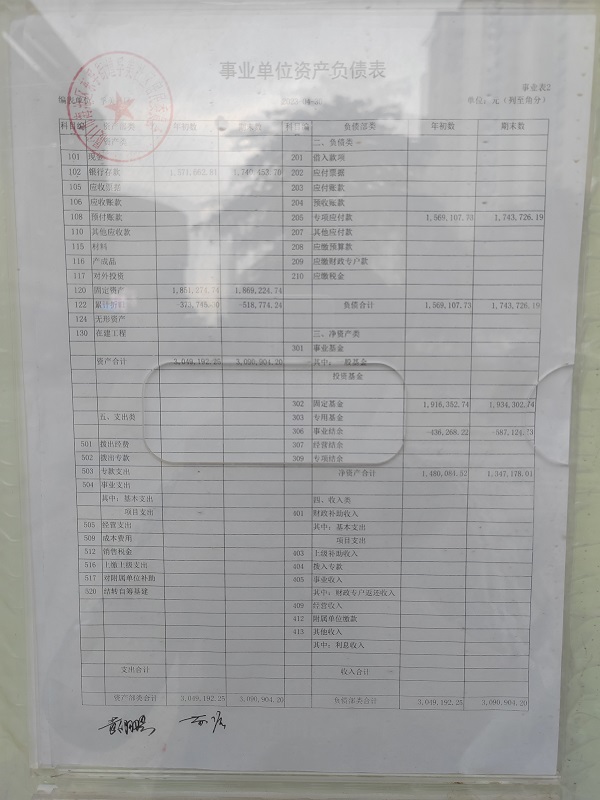 事业单位资产负债表
事业表2
单位：元（列至角分）
科目编 资产部类 年初数 期末数 科目编 负债部类 年初数 期末数
二、负债类
101 现金 201 借入款项
102 银行存款 202 应付票据
105 应收票据 203 应付账款
106 应收账款 204 预收账款
108 预付账款 205 专项应付款 1,569,107.73 1,743,726.19
110 其他应收款 207 其他应付款
115 材料 208 应缴预算款
116 产成品 209 应缴财政专户款
117 对外投资 210 应缴税金
120 固定资产 1,851,274.74 1,869,224.74
122 累计折旧 -518,774.24 负债合计 1,569,107.73 1,743,726.19
124 无形资产
130 在建工程 三、净资产类
301 事业基金
资产合计 3,049,192.25 3,090,904.20 其中：一般基金
投资基金
302 固定基金 1,916,352.74 1,934,302.74
五、支出类 303 专用基金
306 事业结余 -436,268.22 -587,124.73
501 拨出经费 307 经营结余
502 拨出专款 309 专项结余
503 专款支出 净资产合计 1,480,084.52 1,347,178.01
504 事业支出
其中：基本支出 四、收入类
项目支出 401 财政补助收入
505 经营支出 其中：基本支出
509 成本费用 项目支出
512 销售税金 403 上级补助收入
516 上缴上级支出 404 拨入专款
517 对附属单位补助 405 事业收入
520 结转自筹基建 其中：财政专户返还收入
409 经营收入
412 附属单位缴款
413 其他收入
其中：利息收入
支出合计 收入合计
资产部类合计 3,049,192.25 3,090,904.20 负债部类合计 3,049,192.25 3,090,904.20